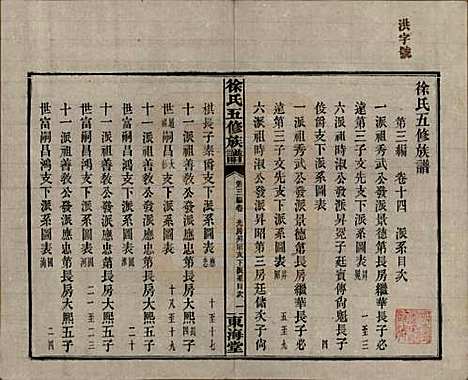 洪字號
徐氏五修族譜
第三編 卷十四 派系目次
六派祖秀武公發派景德第長房繼華長子必
遠第三子文先支下派系圖表 一至三
六派祖時淑公發派昇冕子廷賓傳尙魁長子
俊爵支下派系圖表 四
一派祖秀武公發派景德第長房繼華長子必
遠第三子文先支下派系圖表 五至九
六派祖時淑公發派昇昭第三房廷儲次子子
徐氏五修族譜
第三編卷
支下派系目次
一
東海堂
祺長子奉爵支下派系圖表 十至十七
十一派祖善敎公發派應忠第長房大熙五子
世富嗣昌鴻支下派系圖表 十八至十九
十一派祖善敎公發派應忠第長房大熙五子
世富嗣昌鴻支下派系圖表 二一至二三
十一派祖善敎公發派應忠第長房大熙五子
世富嗣昌鴻支下派系圖表 二四